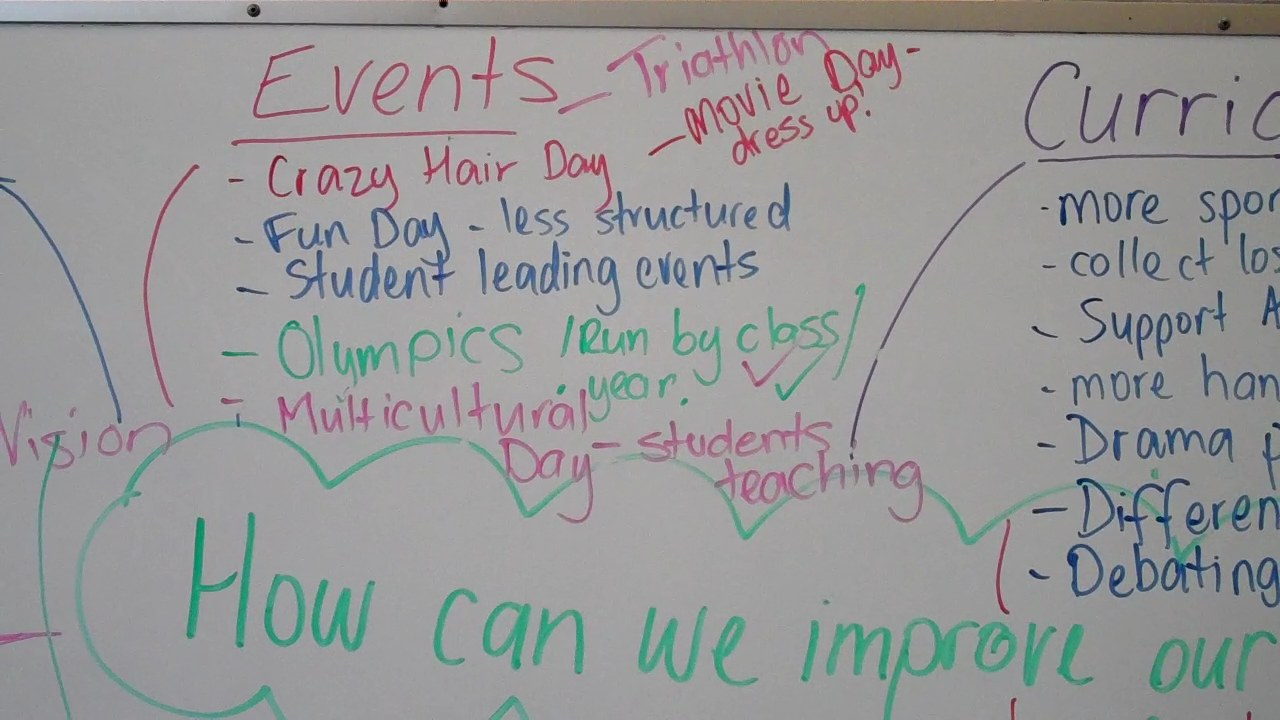 Events - Triathlon
- Movie Day -
dress up!
- Crazy Hair Day
- Fun Day - less structured
- Student leading events
- Olympics / Run by class/
year.
- Multicultural
Day - students
teaching
Vision
Curric
- more spor
- collect los
- Support A
- more han
- Drama
- Differen
- Debating
How can we improve our